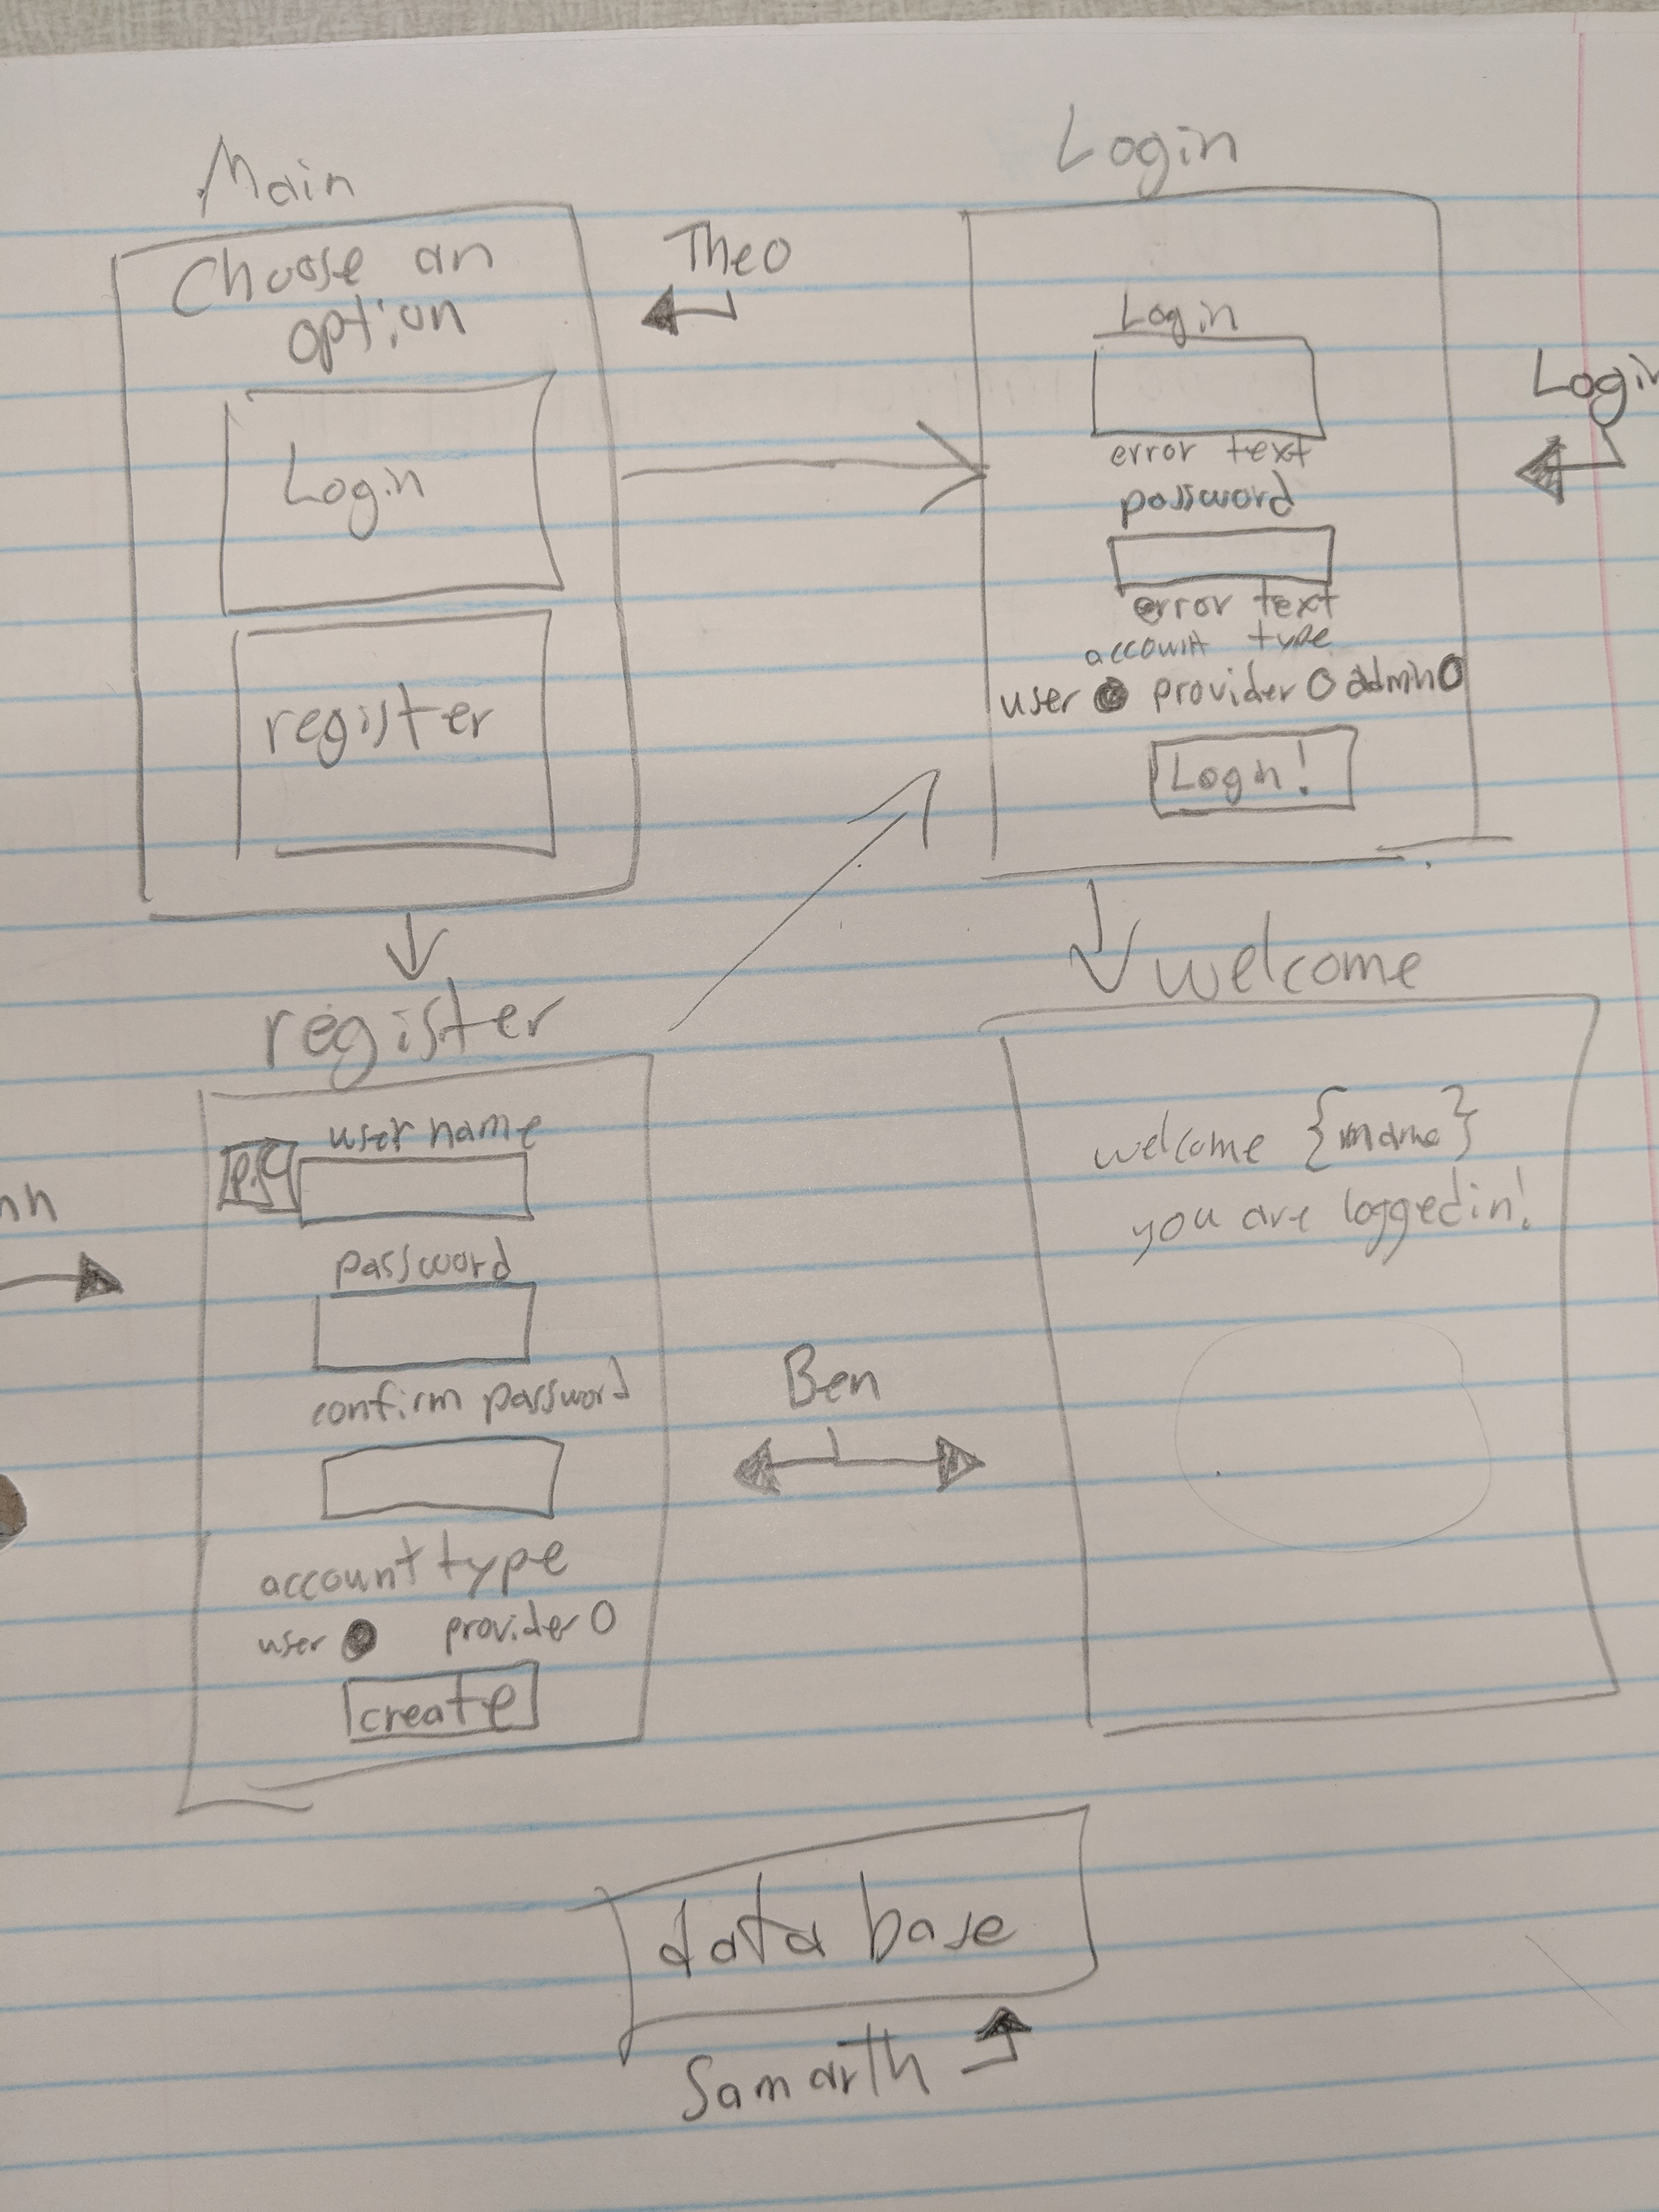 Main
Choose an
option
Login
register
Theo
Login
Login
error text
password
error text
account type
user provider admin
Login!
register
user name
password
confirm password
account type
user provider
create
Ben
welcome
welcome {name}
you are logged in!
data base
Samarth